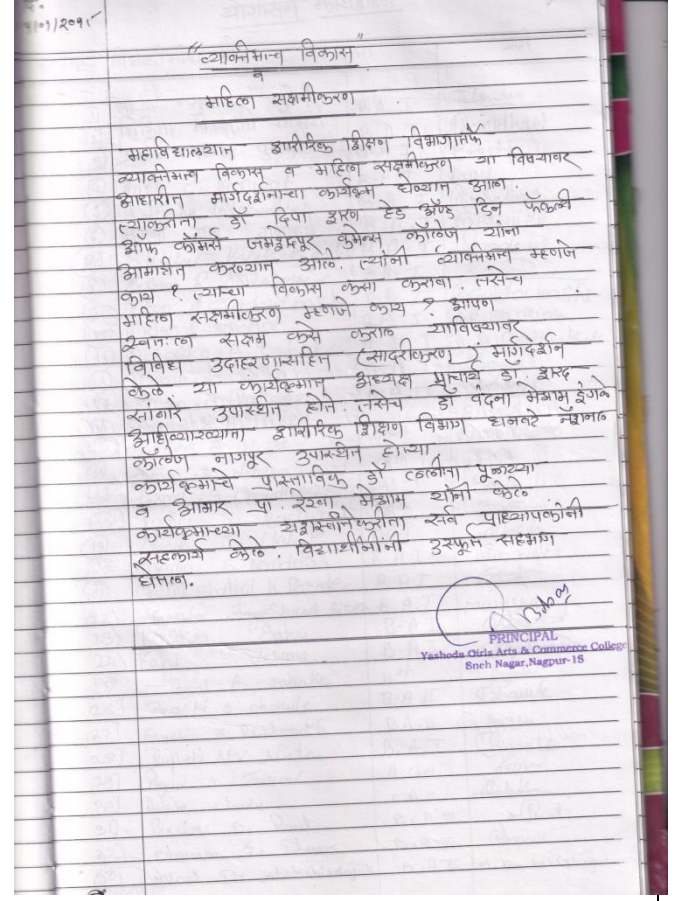 "व्यक्तिमत्व विकास"
व
महिला सक्षमीकरण
महाविद्यालयात शारीरिक शिक्षण विभागातर्फे
व्यक्तिमत्व विकास व महिला सक्षमीकरण या विषयावर
आधारीत मार्गदर्शनाचा कार्यक्रम घेण्यात आला.
त्याकरीता डॉ दिपा शरण हेड अँण्ड डिन फॅकल्टी
ऑफ कॉमर्स जमशेदपूर वुमेन्स कॉलेज यांना
आमंत्रित करण्यात आले. त्यांनी व्यक्तिमत्व म्हणजे
काय ? त्याचा विकास कसा करावा. तसेच
महिला सक्षमीकरण म्हणजे काय ? आपण
स्वतःला सक्षम कसे कराल याविषयावर
विविध उदाहरणासहित (सादरीकरण) मार्गदर्शन
केले या कार्यक्रमात अध्यक्ष प्राचार्य डॉ. शरद
सांबारे उपास्थीत होते. तसेच डॉ वंदना मेश्राम इंगळे
अधीव्याख्याता शारीरिक शिक्षण विभाग धनवटे नॅशनल
कॉलेज नागपूर उपास्थीत होत्या.
कार्यक्रमाचे प्रास्ताविक डॉ ललीता पून्नय्या
व आभार प्रा. रेखा मेश्राम यांनी केले
कार्यक्रमाच्या यशस्वीतेकरीता सर्व प्राध्यापकांनी
सहकार्य केले. विद्यार्थीनींनी उस्फूर्त सहभाग
घेतला.
PRINCIPAL
Yashoda Girls Arts & Commerce College
Sneh Nagar, Nagpur-15